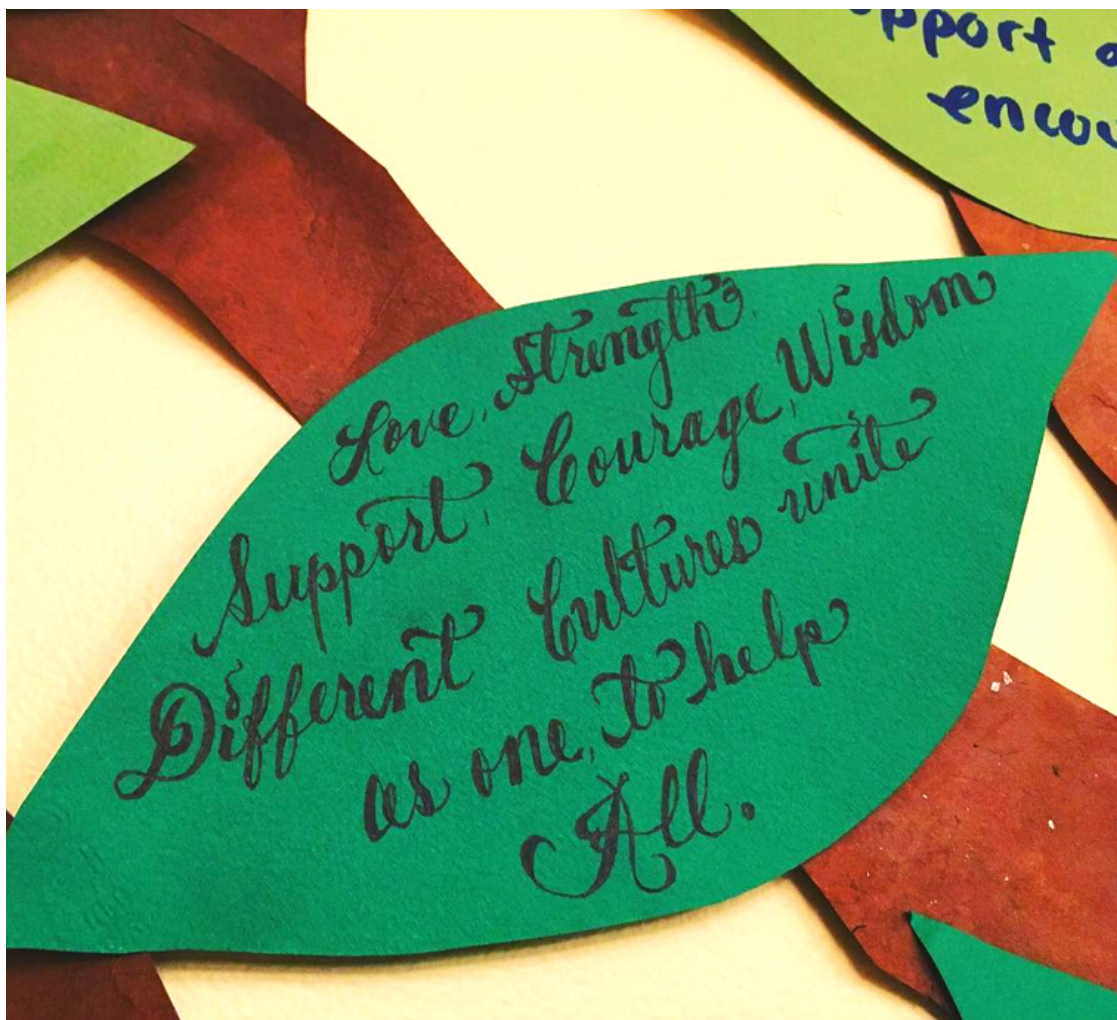 support
Love, Strength,
Support, Courage, Wisdom
Different Cultures unite
as one, to help
All.